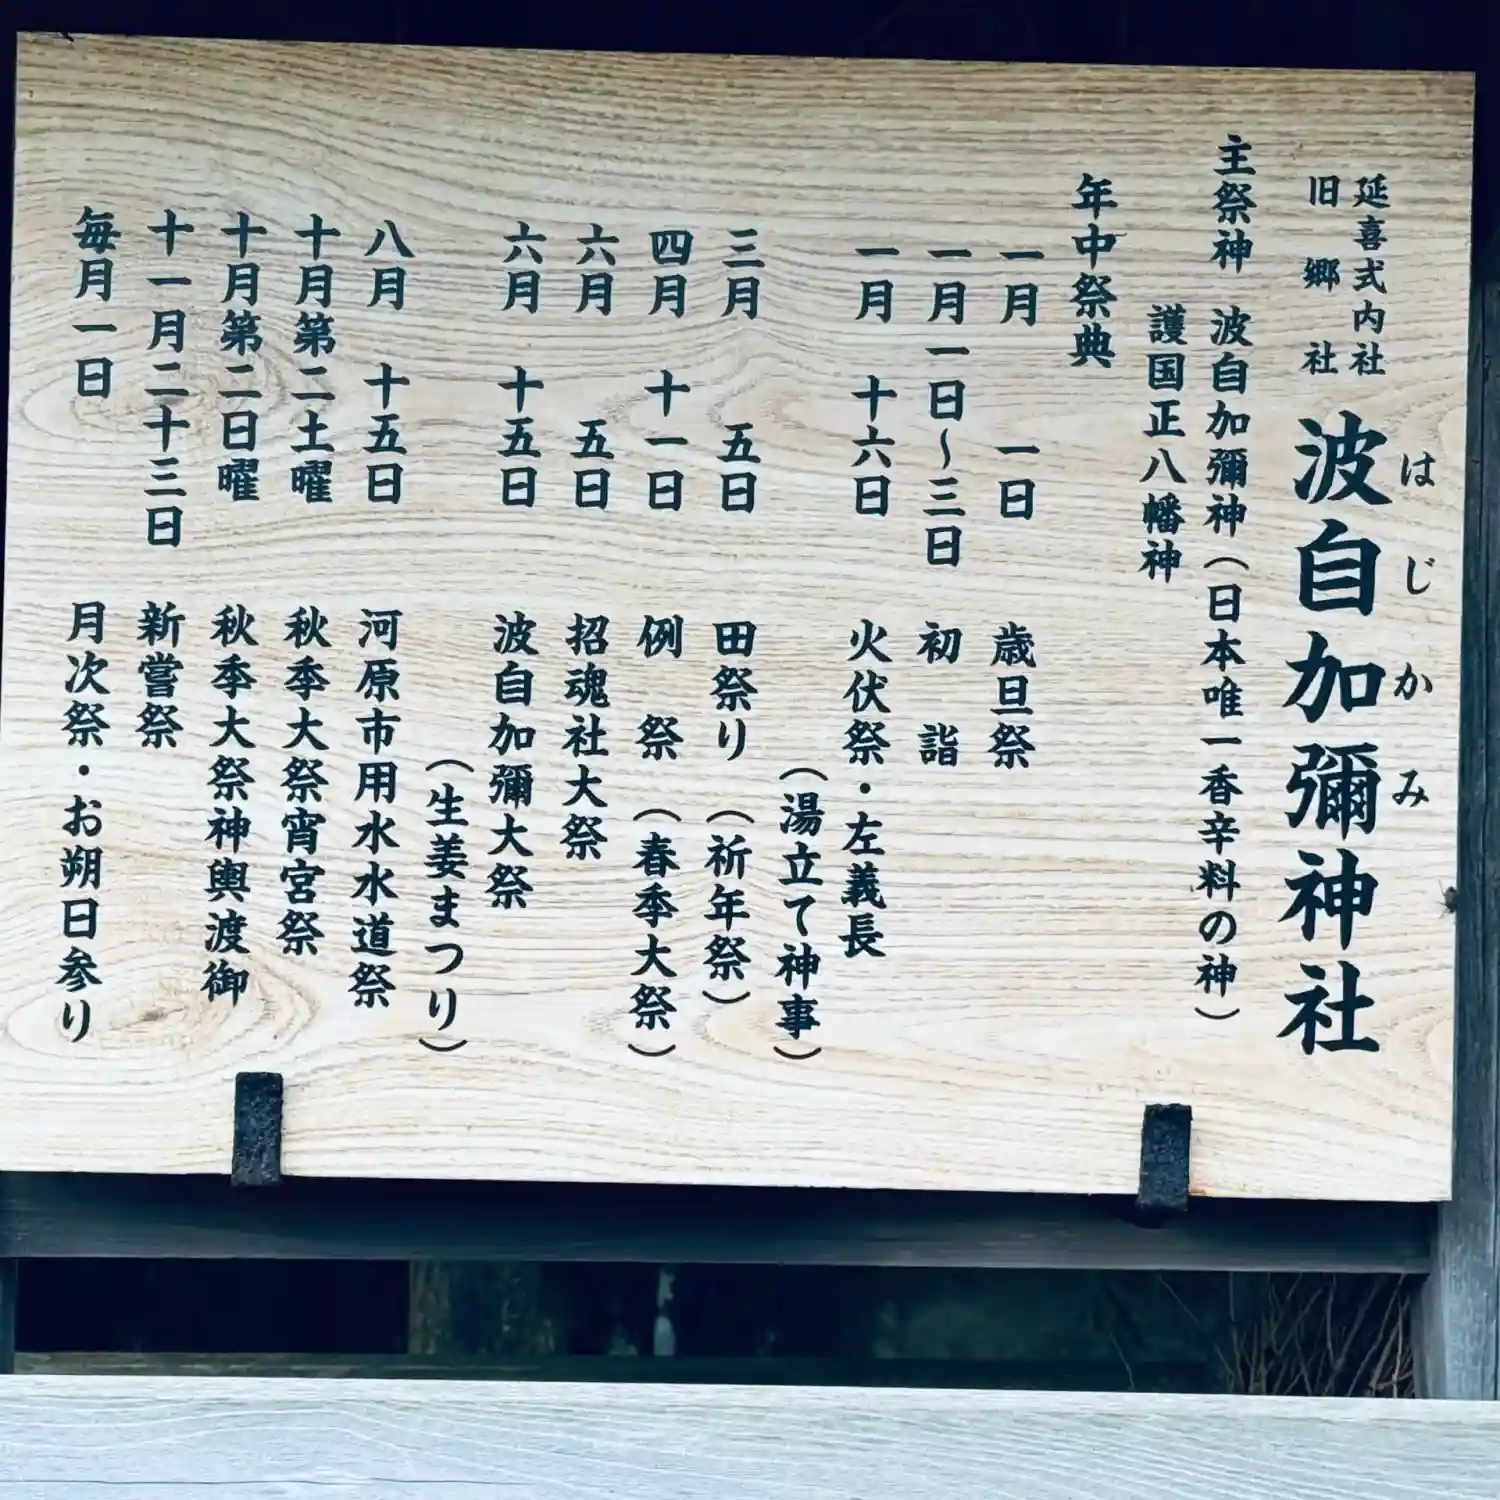 延喜式内社
旧郷社
波自加彌神社
はじかみ
主祭神 波自加彌神（日本唯一香辛料の神）
護国正八幡神
年中祭典
一月 一日 歳旦祭
一月一日～三日 初詣
一月 十六日 火伏祭・左義長
（湯立て神事）
三月 五日 田祭り（祈年祭）
四月 十一日 例祭（春季大祭）
六月 五日 招魂社大祭
六月 十五日 波自加彌大祭
（生姜まつり）
八月 十五日 河原市用水水道祭
十月第二土曜 秋季大祭宵宮祭
十月第二日曜 秋季大祭神輿渡御
十一月二十三日 新嘗祭
毎月一日 月次祭・お朔日参り